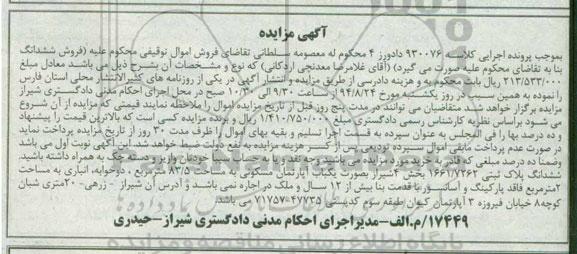 آگهی مزایده
بموجب پرونده اجرایی کلاسه ۹۳۰۰۷۶ دادورز ۴ محکوم له معصومه سلطانی تقاضای فروش اموال توقیفی محکوم علیه (فروش ششدانگ
بنا به تقاضای محکوم علیه صورت می گیرد) (آقای غلامرضا معدنچی اردکانی) که نوع و مشخصات آن بشرح ذیل می باشد معادل مبلغ
۳۱۳/۵۳۳/۰۰۰ ریال بابت محکوم به و هزینه دادرسی از طریق مزایده و انتشار آگهی در یکی از روزنامه های کثیرالانتشار محلی استان فارس
را نموده به همین سبب در روز یکشنبه مورخ ۹۴/۸/۲۴ از ساعت ۹/۳۰ الی ۱۰/۳۰ صبح در محل اجرای احکام مدنی دادگستری شیراز
مزایده برگزار خواهد شد. متقاضیان می توانند در مدت پنج روز قبل از تاریخ مزایده اموال را ملاحظه نمایند قیمتی که مزایده از آن شروع
می شود براساس نظریه کارشناس رسمی دادگستری مبلغ ۱/۴۱۰/۷۵۰/۰۰۰ ریال و برنده مزایده کسی است که بالاترین قیمت را پیشنهاد
و ده درصد بها را فی المجلس به عنوان سپرده به قسمت اجرا تسلیم و بقیه بهای اموال را ظرف مدت ۳۰ روز از تاریخ مزایده پرداخت نماید
در صورت عدم پرداخت مابقی اموال سپرده تودیعی پس از کسر هزینه مزایده به نفع دولت ضبط خواهد شد. این آگهی نوبت اول می باشد
وضمنا ده درصد مبلغی که قادر به خرید مورد مزایده می باشید وجه نقد یا به حساب سپرده خودتان واریز و دسته چک به همراه داشته باشید.
ششدانگ پلاک ثبتی ۱۶۶۱/۷۲۶۲ بخش ۴شیراز بصورت یکباب آپارتمان مسکونی به مساحت ۸۳/۵ مترمربع ، دوخوابه، انباری به مساحت
۲مترمربع فاقد پارکینگ و آسانسور با قدمت بنا بیش از ۱۲ سال و ملک در اجاره نمی باشد و آدرس آن شیراز - زرهی- ۲۰متری شبان
کوچه۸ خیابان فیروزه ۳ آپارتمان کیوان طبقه سوم کدپستی ۴۷۷۳۵-۷۱۷۵۷ می باشد.
۱۷۴۴۹/م.الف-مدیراجرای احکام مدنی دادگستری شیراز-حیدری
پایگاه اطلاع رسانی مناقصه و مزایده